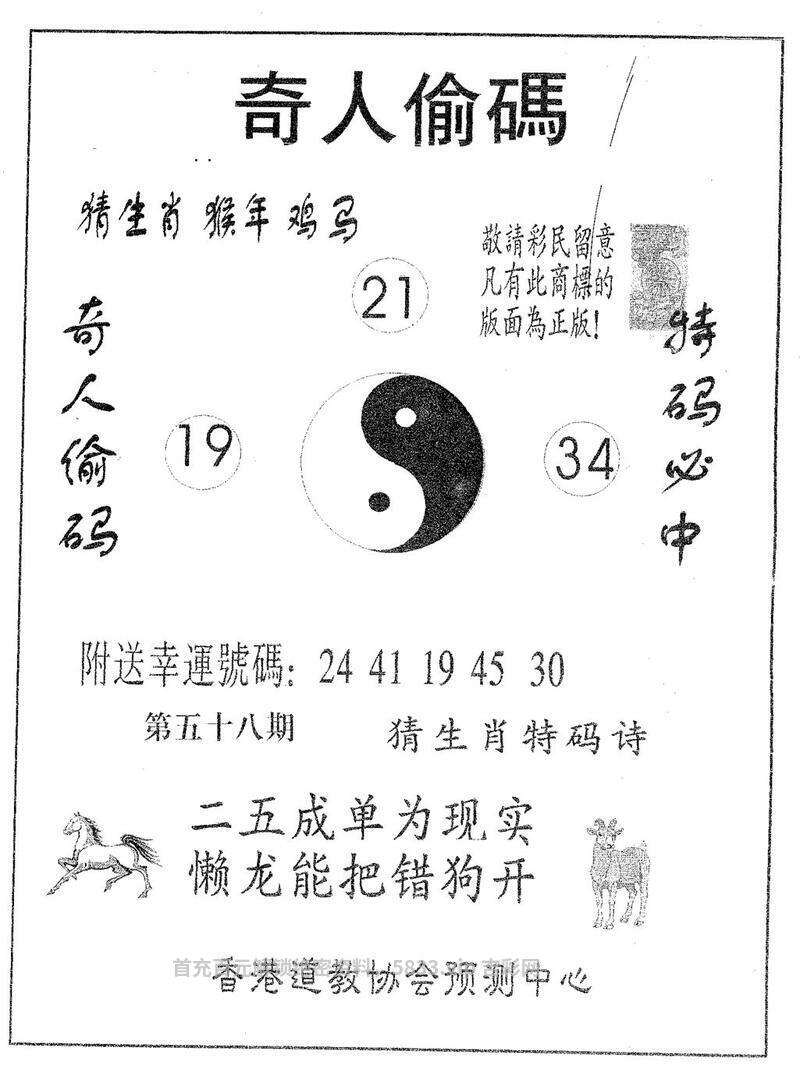 奇人偷碼
猜生肖 猴年 鸡马
敬請彩民留意
凡有此商標的
版面為正版!
21
19
34
奇人偷码
特码必中
附送幸運號碼: 24 41 19 45 30
第五十八期
猜生肖特码诗
二五成单为现实
懒龙能把错狗开
香港道教协会预测中心